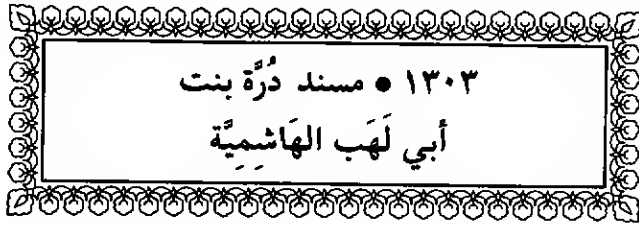 ١٣٠٣ • مسند دُرَّة بنت
أبي لَهَب الهَاشِمِيَّة